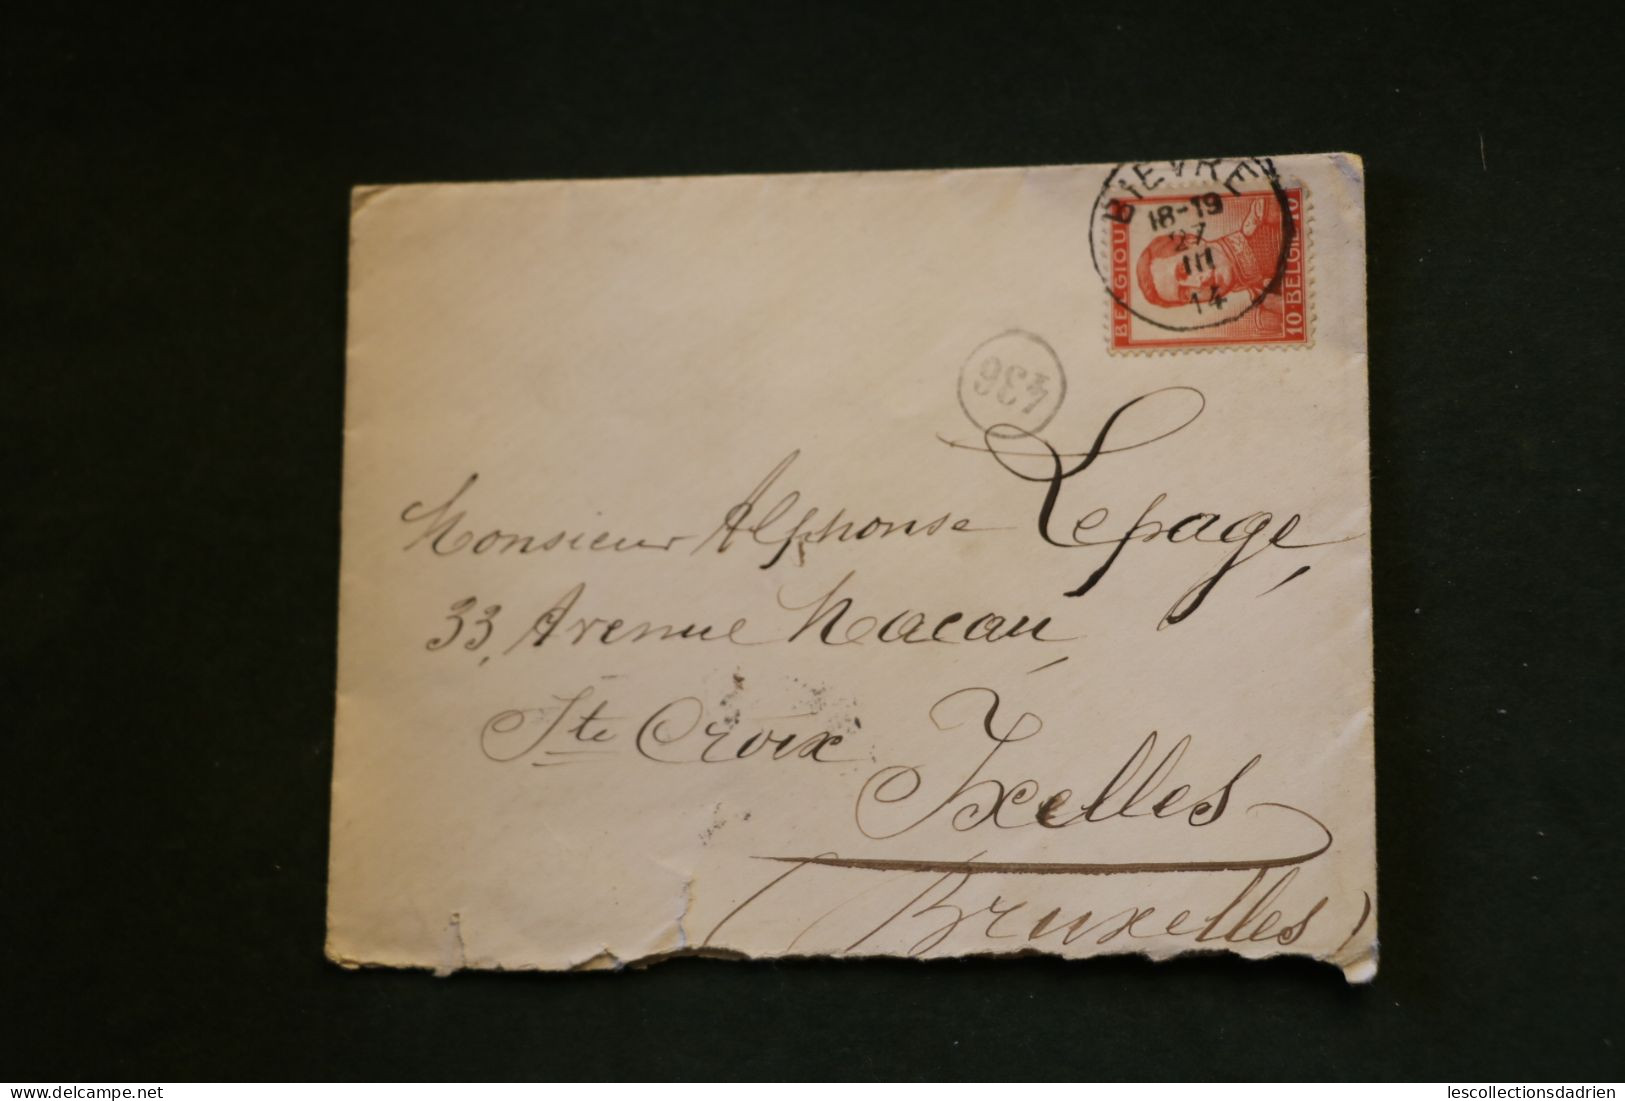 BIEVRE
18-19
27
III
14
BELGIQUE 10
10 BELGIË
436
Monsieur Alphonse Lepage,
33, Avenue Macau,
Ste Croix
Ixelles
(Bruxelles)
Delcampe.net
lescollectionsdadrien